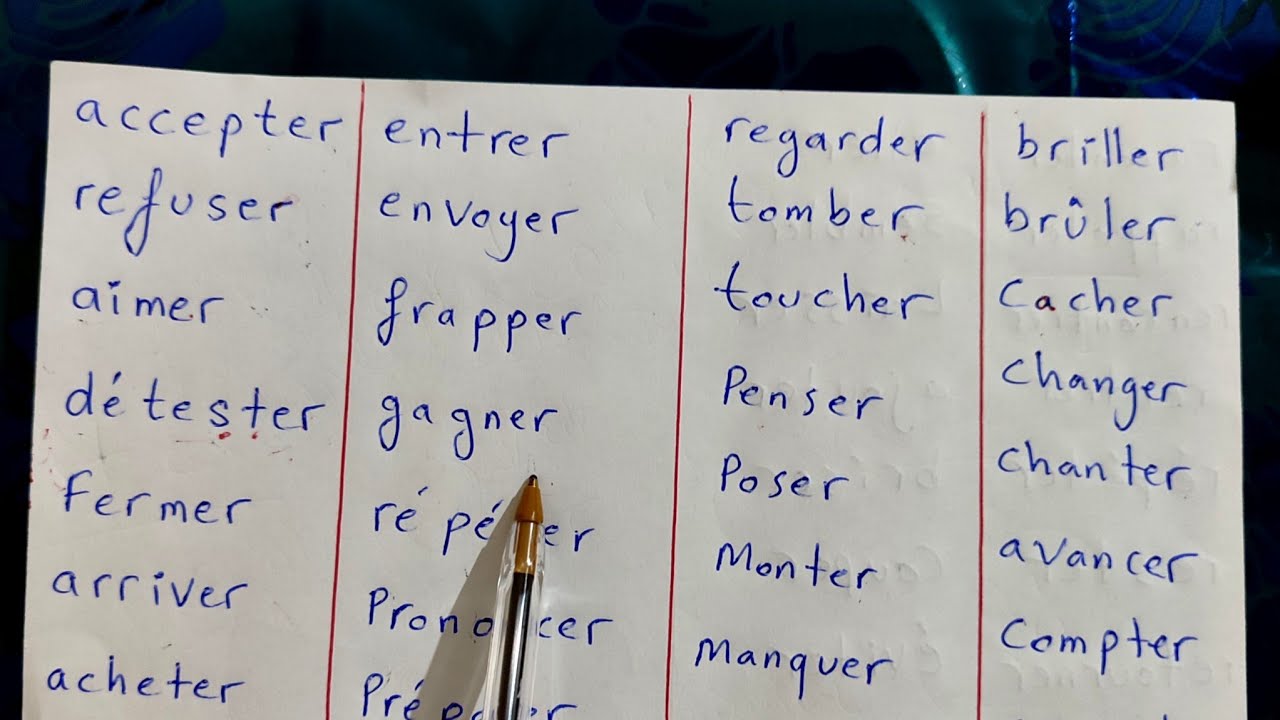 accepter
refuser
aimer
détester
Fermer
arriver
acheter
entrer
envoyer
frapper
gagner
regarder
tomber
toucher
Penser
Poser
Monter
Manquer
briller
brûler
Cacher
changer
chanter
avancer
Compter